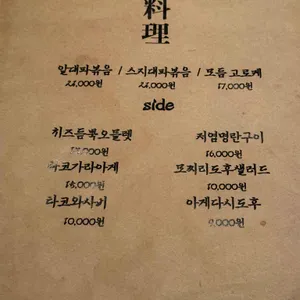 料
理
알대파볶음 / 스지대파볶음 / 모듬 고로케
26,000원 26,000원 17,000원
side
치즈듬뿍오믈렛 저염명란구이
16,000원
타코가라아게 또찌리도후샐러드
15,000원 10,000원
타코와사키 아게다시도후
10,000원 9,000원